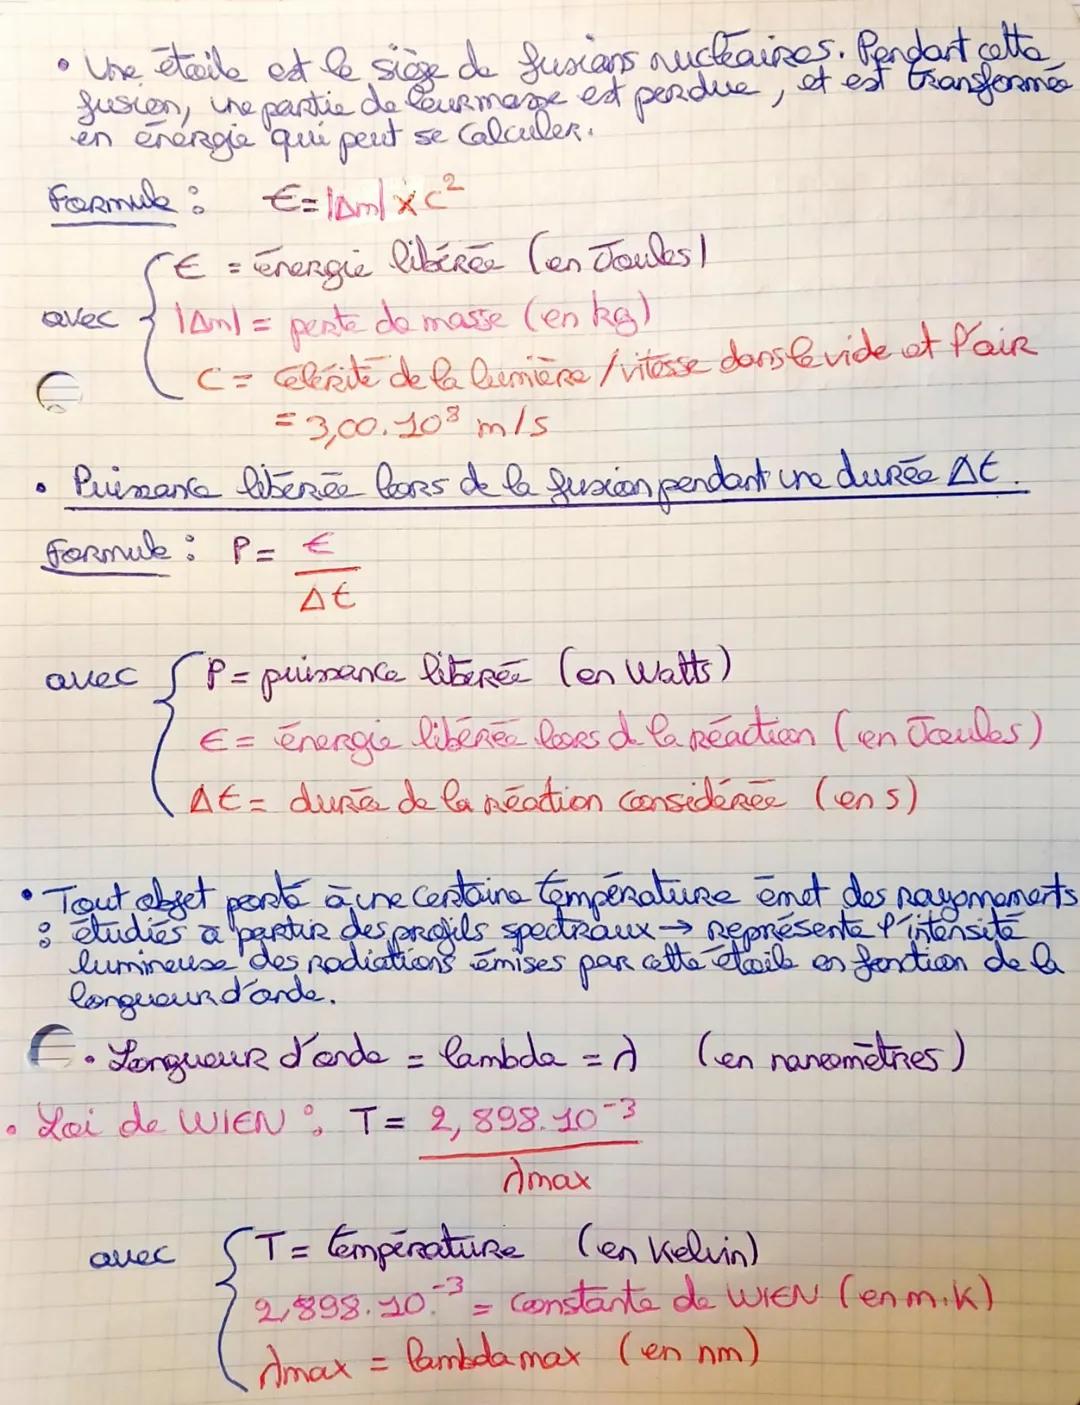 • Une étoile est le siège de fusions nucléaires. Pendant cette
fusion, une partie de leur masse est perdue, et est transformée
en énergie qui peut se calculer.
Formule : E = |Δm| x c²
avec { E = énergie libérée (en Joules)
|Δm| = perte de masse (en kg)
C = célérité de la lumière / vitesse dans le vide et l'air
= 3,00.10⁸ m/s
• Puissance libérée lors de la fusion pendant une durée Δt.
Formule : P = E
Δt
avec { P = puissance libérée (en Watts)
E = énergie libérée lors de la réaction (en Joules)
Δt = durée de la réaction considérée (en s)
• Tout objet porté à une certaine température émet des rayonnements
: étudiés à partir des profils spectraux → représente l'intensité
lumineuse des radiations émises par cette étoile en fonction de la
longueur d'onde.
• Longueur d'onde = lambda = λ (en nanomètres)
• Loi de WIEN : T = 2,898.10⁻³
λmax
avec { T = température (en Kelvin)
2,898.10.⁻³ = constante de WIEN (en m.K)
λmax = lambda max (en nm)